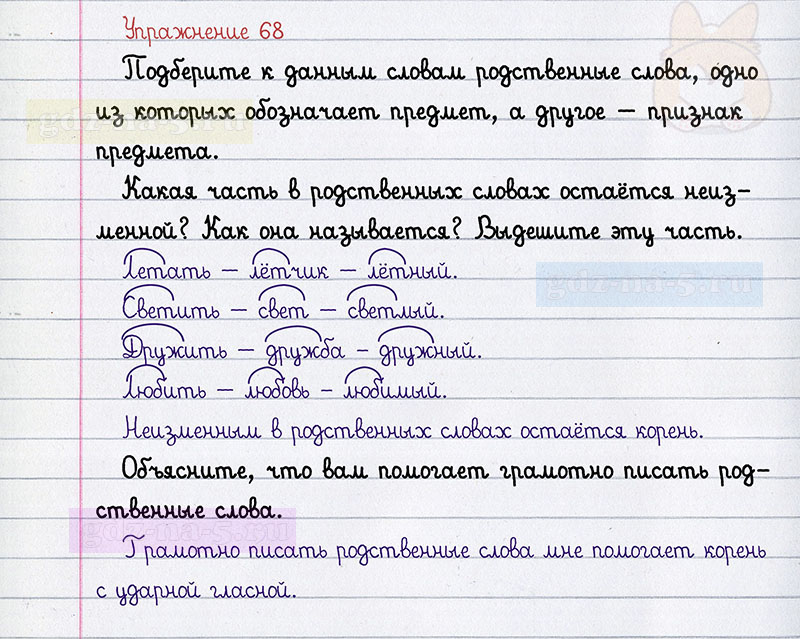 Упражнение 68
Подберите к данным словам родственные слова, одно
из которых обозначает предмет, а другое — признак
предмета.
Какая часть в родственных словах остаётся неиз-
менной? Как она называется? Выдешите эту часть.
Летать — лётчик — лётный.
Светить — свет — светлый.
Дружить — дружба – дружный.
Любить — любовь – любимый.
Неизменным в родственных словах остаётся корень.
Объясните, что вам помогает грамотно писать род-
ственные слова.
Грамотно писать родственные слова мне помогает корень
с ударной гласной.
gdz-na-5.ru
gdz-na-5.ru
gdz-na-5.ru